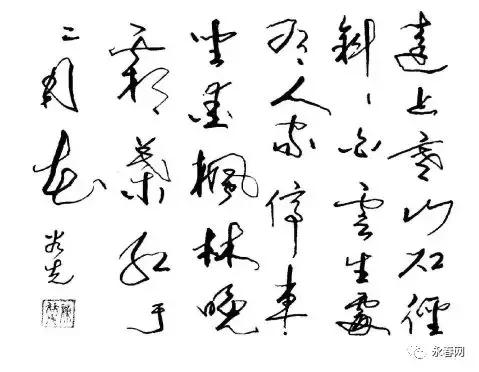 遠上寒山石徑
斜白雲生處
有人家停車
坐愛楓林晚
霜葉紅于
二月花
永春网